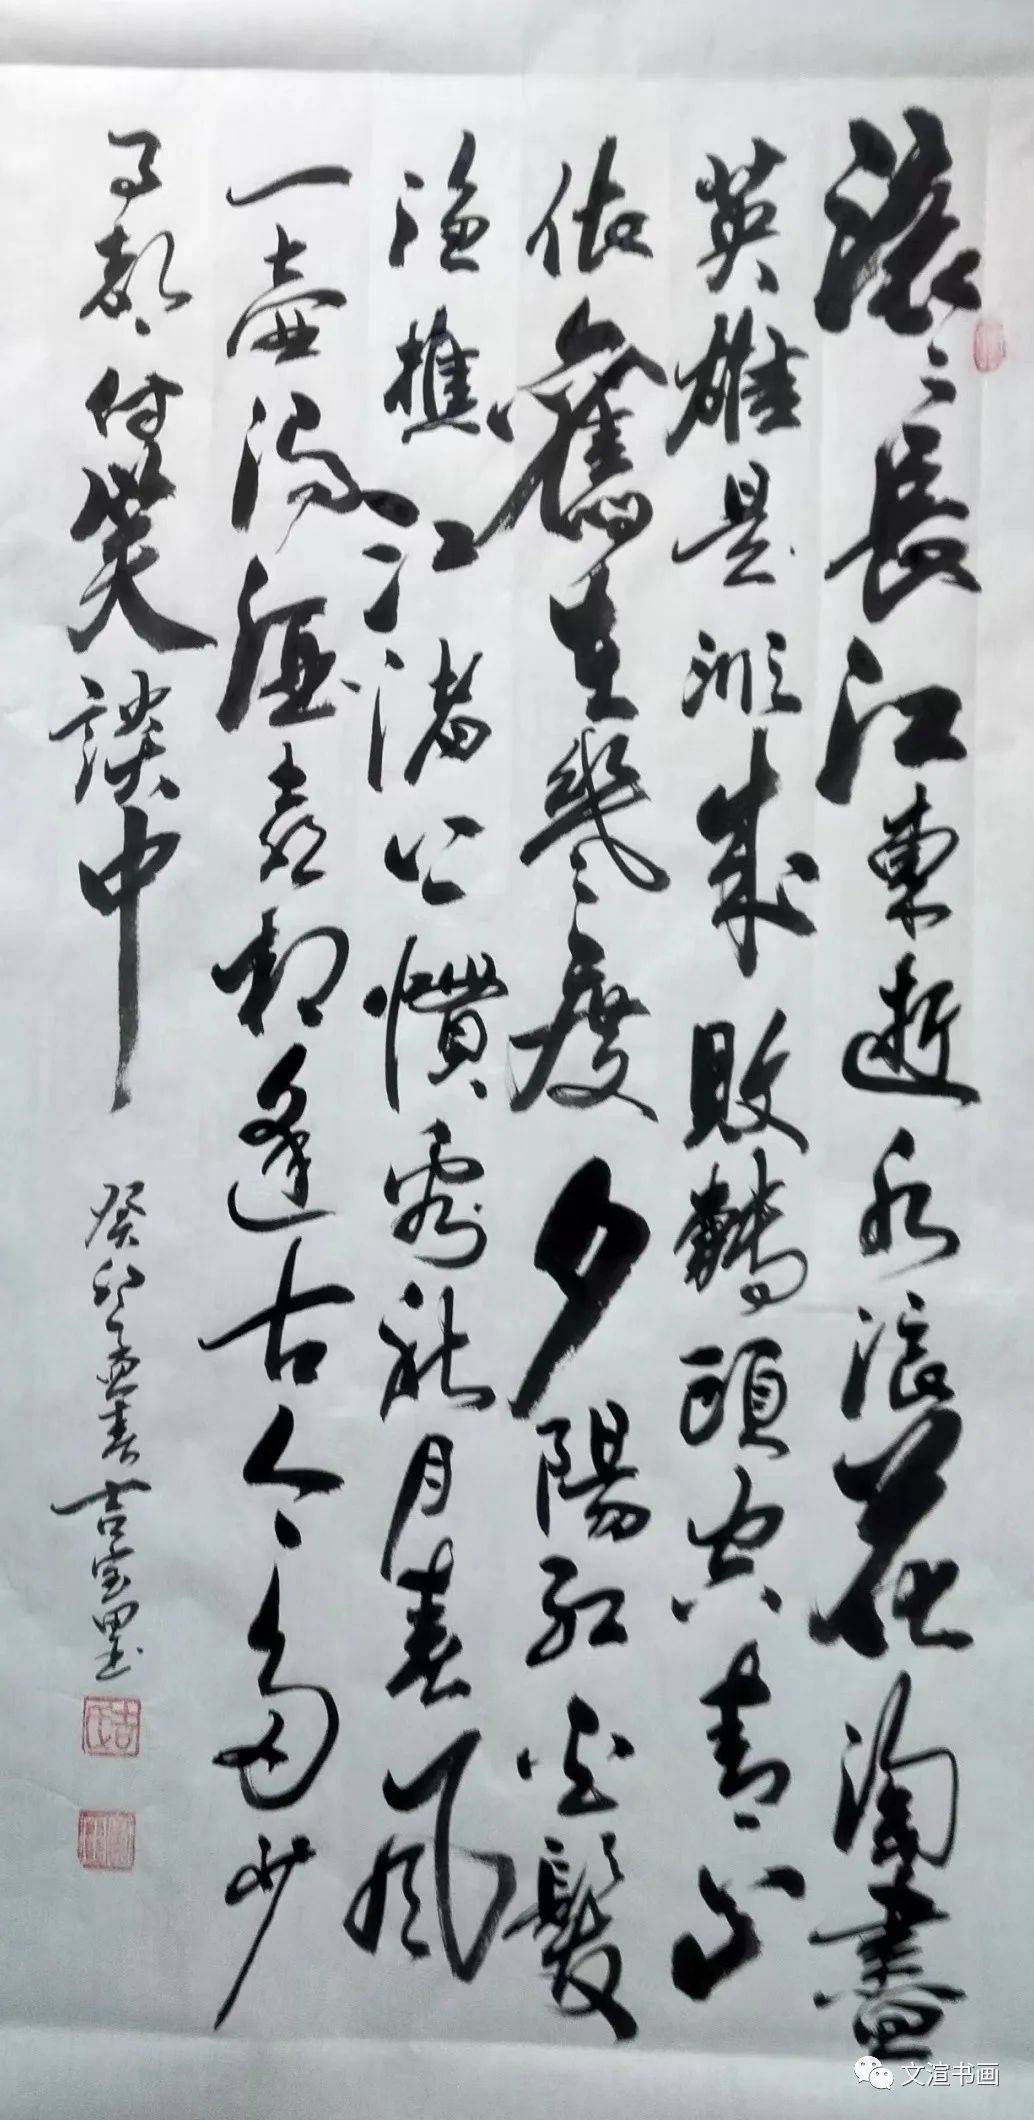 滾滾長江東逝水浪花淘盡
英雄是非成敗轉頭空青山
依舊在幾度夕陽紅白髮
漁樵江渚上慣看秋月春風
一壺濁酒喜相逢古今多少
事都付笑談中
癸卯孟春吉宝墨
文渲书画